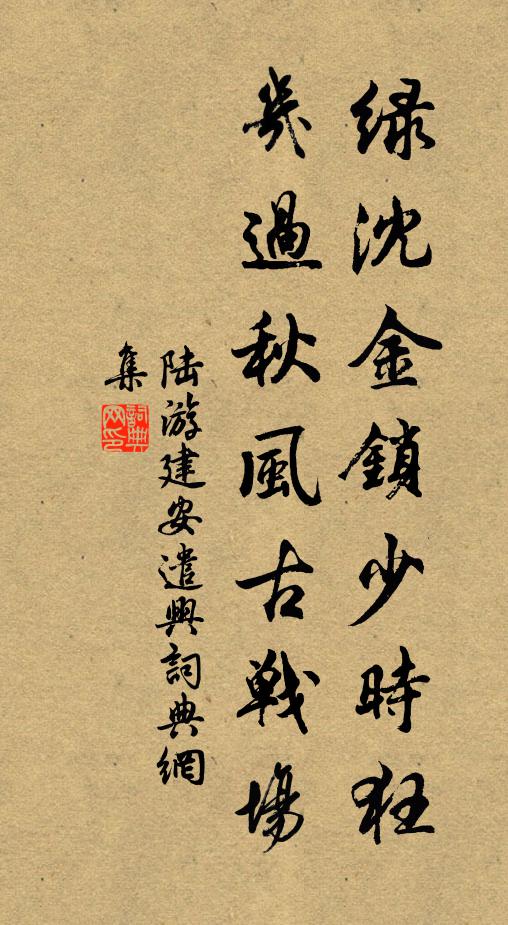 绿沈金鎖少時狂
幾過秋風古戰場
陆游建安遣興詞典網
集
詞典
网印